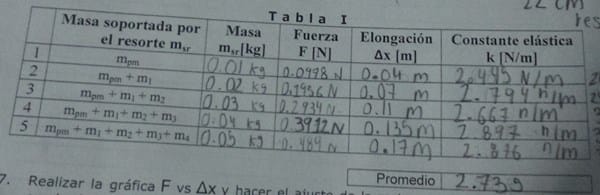 22 cm
res
Tabla I
Masa soportada por el resorte m_sr | Masa m_sr[kg] | Fuerza F [N] | Elongación Δx [m] | Constante elástica k [N/m]
1 m_pm 0.01 kg 0.0978 N 0.04 m 2.445 N/m
2 m_pm + m_1 0.02 kg 0.1956 N 0.07 m 2.794 n/m
3 m_pm + m_1 + m_2 0.03 kg 0.2934 N 0.11 m 2.667 n/m
4 m_pm + m_1 + m_2 + m_3 0.04 kg 0.3912 N 0.135 m 2.897 n/m
5 m_pm + m_1 + m_2 + m_3 + m_4 0.05 kg 0.489 N 0.17 m 2.876 n/m
Promedio 2.739
7. Realizar la gráfica F vs Δx y hacer el ajuste